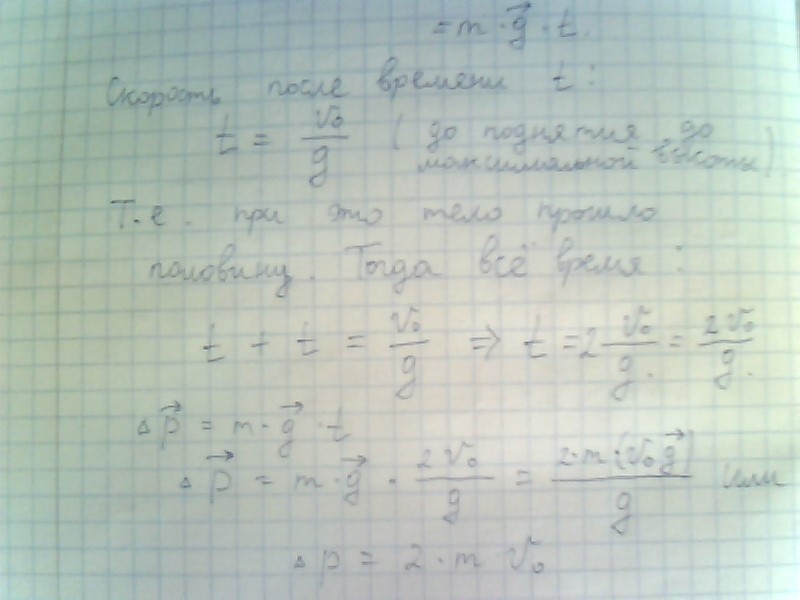 = m · g⃗ · t.
Скорость после времени t:
t = v₀/g (до поднятия до
максимальной высоты)
Т.е. при это тело прошло
половину. Тогда всё время:
t + t = v₀/g ⇒ t = 2 v₀/g. = 2v₀/g.
Δp⃗ = m · g⃗ · t
Δp⃗ = m · g⃗ · 2v₀/g = 2·m·(v₀g⃗)/g или
Δp = 2 · m · v₀